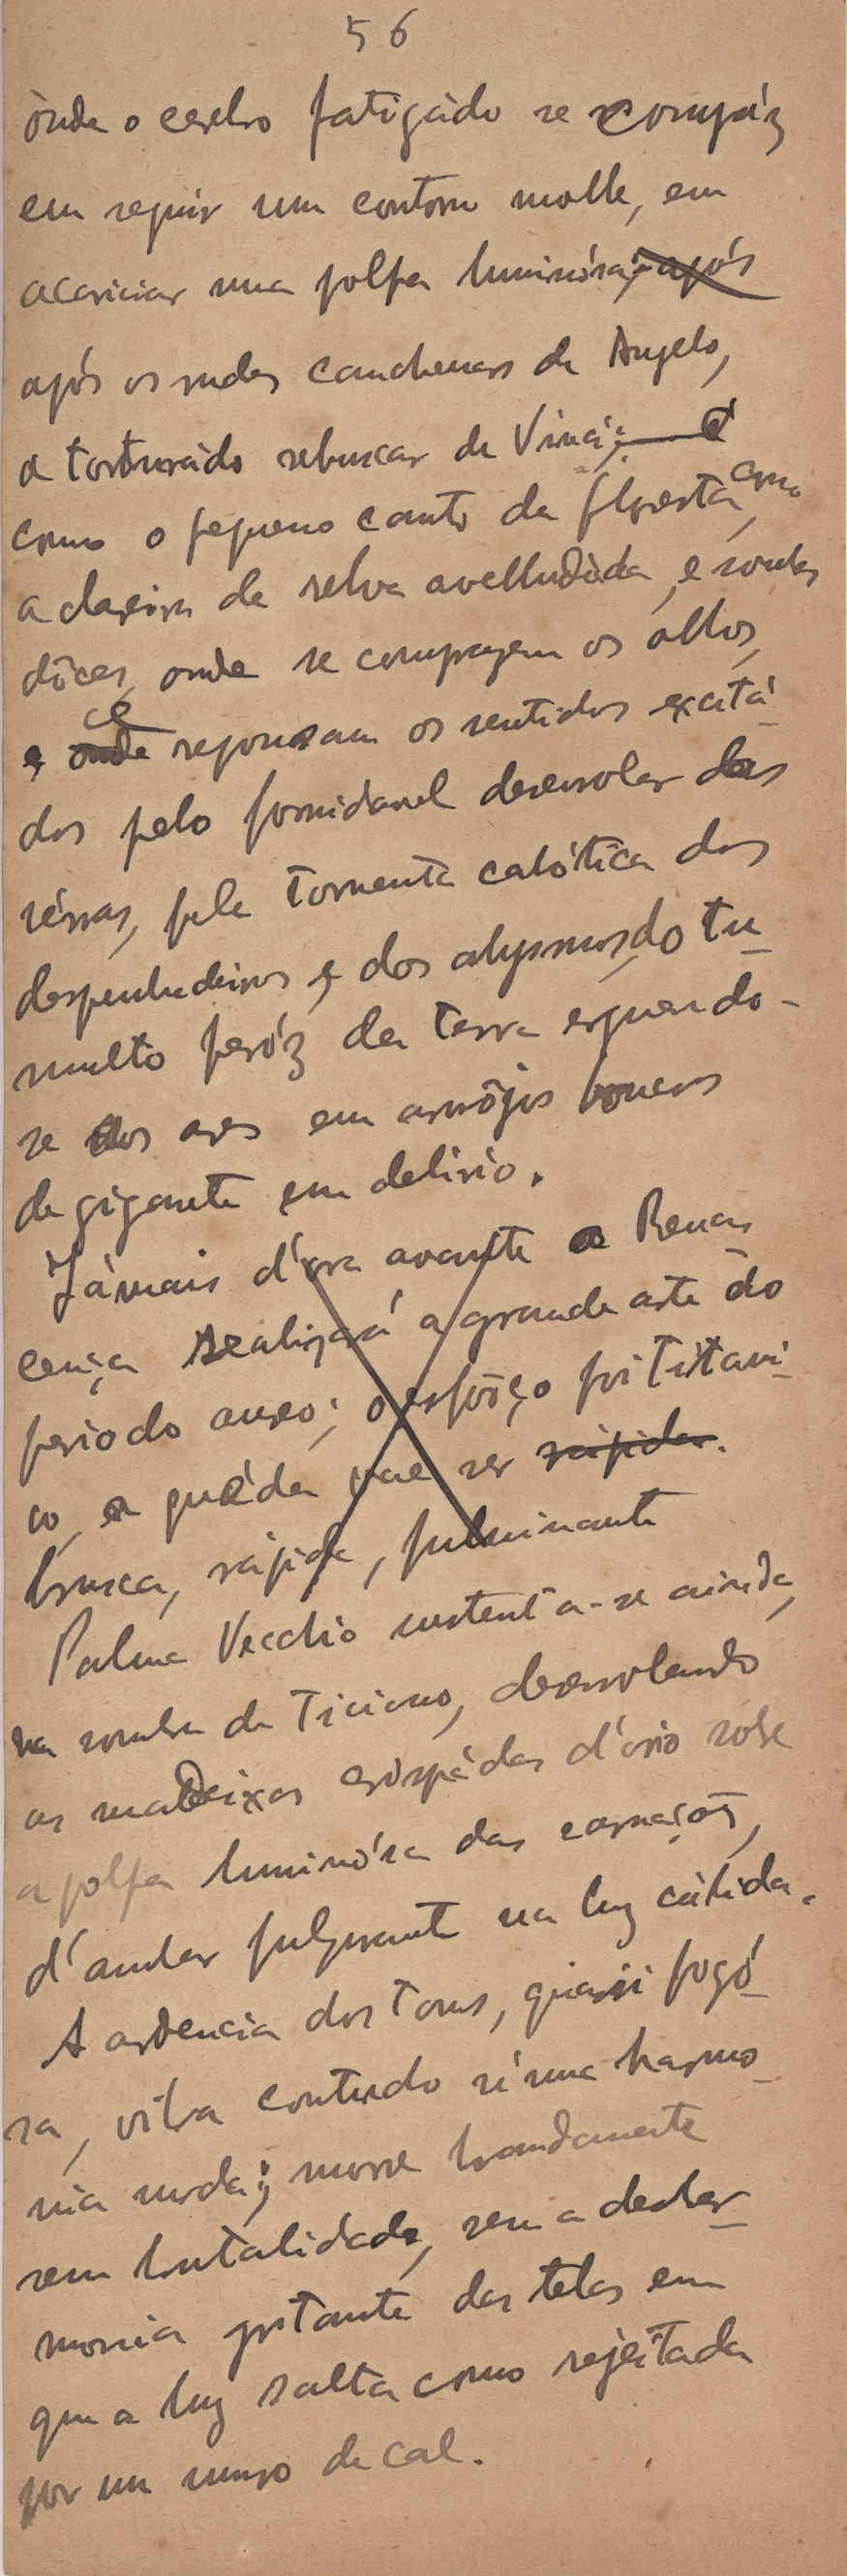 56
ònde o cerebro fatigádo se compáz
em seguir um contorno molle, em
acariciar uma polpa luminósa, após
após os rudes cauchemars de Angelo,
o torturádo rebuscar de Vinci; e
como o pequeno canto da floresta, como
a clareira de relva avelludàda, e sombras
dôces, onde se comprazem os ólhos,
e onde repousam os sentidos excitá-
dos pelo formidavel desenrolar das
sérras, pela tormenta cahótica dos
despenhadeiros e dos abysmos, do tu-
multo feróz da terra erguendo-
se aos ares em arrôjos
de gigante em delirio.
Jámais d'ora avante a Renas
cença realizará a grande arte do
periodo aureo; o esforço foi titani-
co, a quéda vae ser rápida.
brusca, rápida, fulminante
Palma Vecchio sustenta-se ainda,
na sombra de Ticiano, desenrolando
as madeixas crispádas d'oiro sobre
a polpa luminósa das carnações,
d'ambar fulgurante na luz cálida.
A ardencia dos tons, quasi fogó-
sa, vibra contudo n'uma harmo-
nia surda; morre brandamente
sem brutalidade, sem a deshar-
monia gritante das telas em
que a luz salta como rejeitada
por um muro de cal.